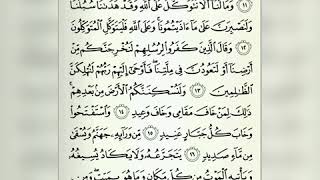 ١١ وَمَا لَنَا أَلَّا نَتَوَكَّلَ عَلَى اللَّهِ وَقَدْ هَدَىٰنَا سُبُلَنَا
وَلَنَصْبِرَنَّ عَلَىٰ مَا ءَاذَيْتُمُونَا وَعَلَى اللَّهِ فَلْيَتَوَكَّلِ الْمُتَوَكِّلُونَ
١٢ وَقَالَ الَّذِينَ كَفَرُوا لِرُسُلِهِمْ لَنُخْرِجَنَّكُم مِّنْ
أَرْضِنَا أَوْ لَتَعُودُنَّ فِي مِلَّتِنَا فَأَوْحَىٰ إِلَيْهِمْ رَبُّهُمْ لَنُهْلِكَنَّ
الظَّالِمِينَ ١٣ وَلَنُسْكِنَنَّكُمُ الْأَرْضَ مِن بَعْدِهِمْ
ذَٰلِكَ لِمَنْ خَافَ مَقَامِي وَخَافَ وَعِيدِ ١٤ وَاسْتَفْتَحُوا
وَخَابَ كُلُّ جَبَّارٍ عَنِيدٍ ١٥ مِّن وَرَائِهِ جَهَنَّمُ وَيُسْقَىٰ
مِن مَّاءٍ صَدِيدٍ ١٦ يَتَجَرَّعُهُ وَلَا يَكَادُ يُسِيغُهُ
وَيَأْتِيهِ الْمَوْتُ مِن كُلِّ مَكَانٍ وَمَا هُوَ بِمَيِّتٍ وَمِن